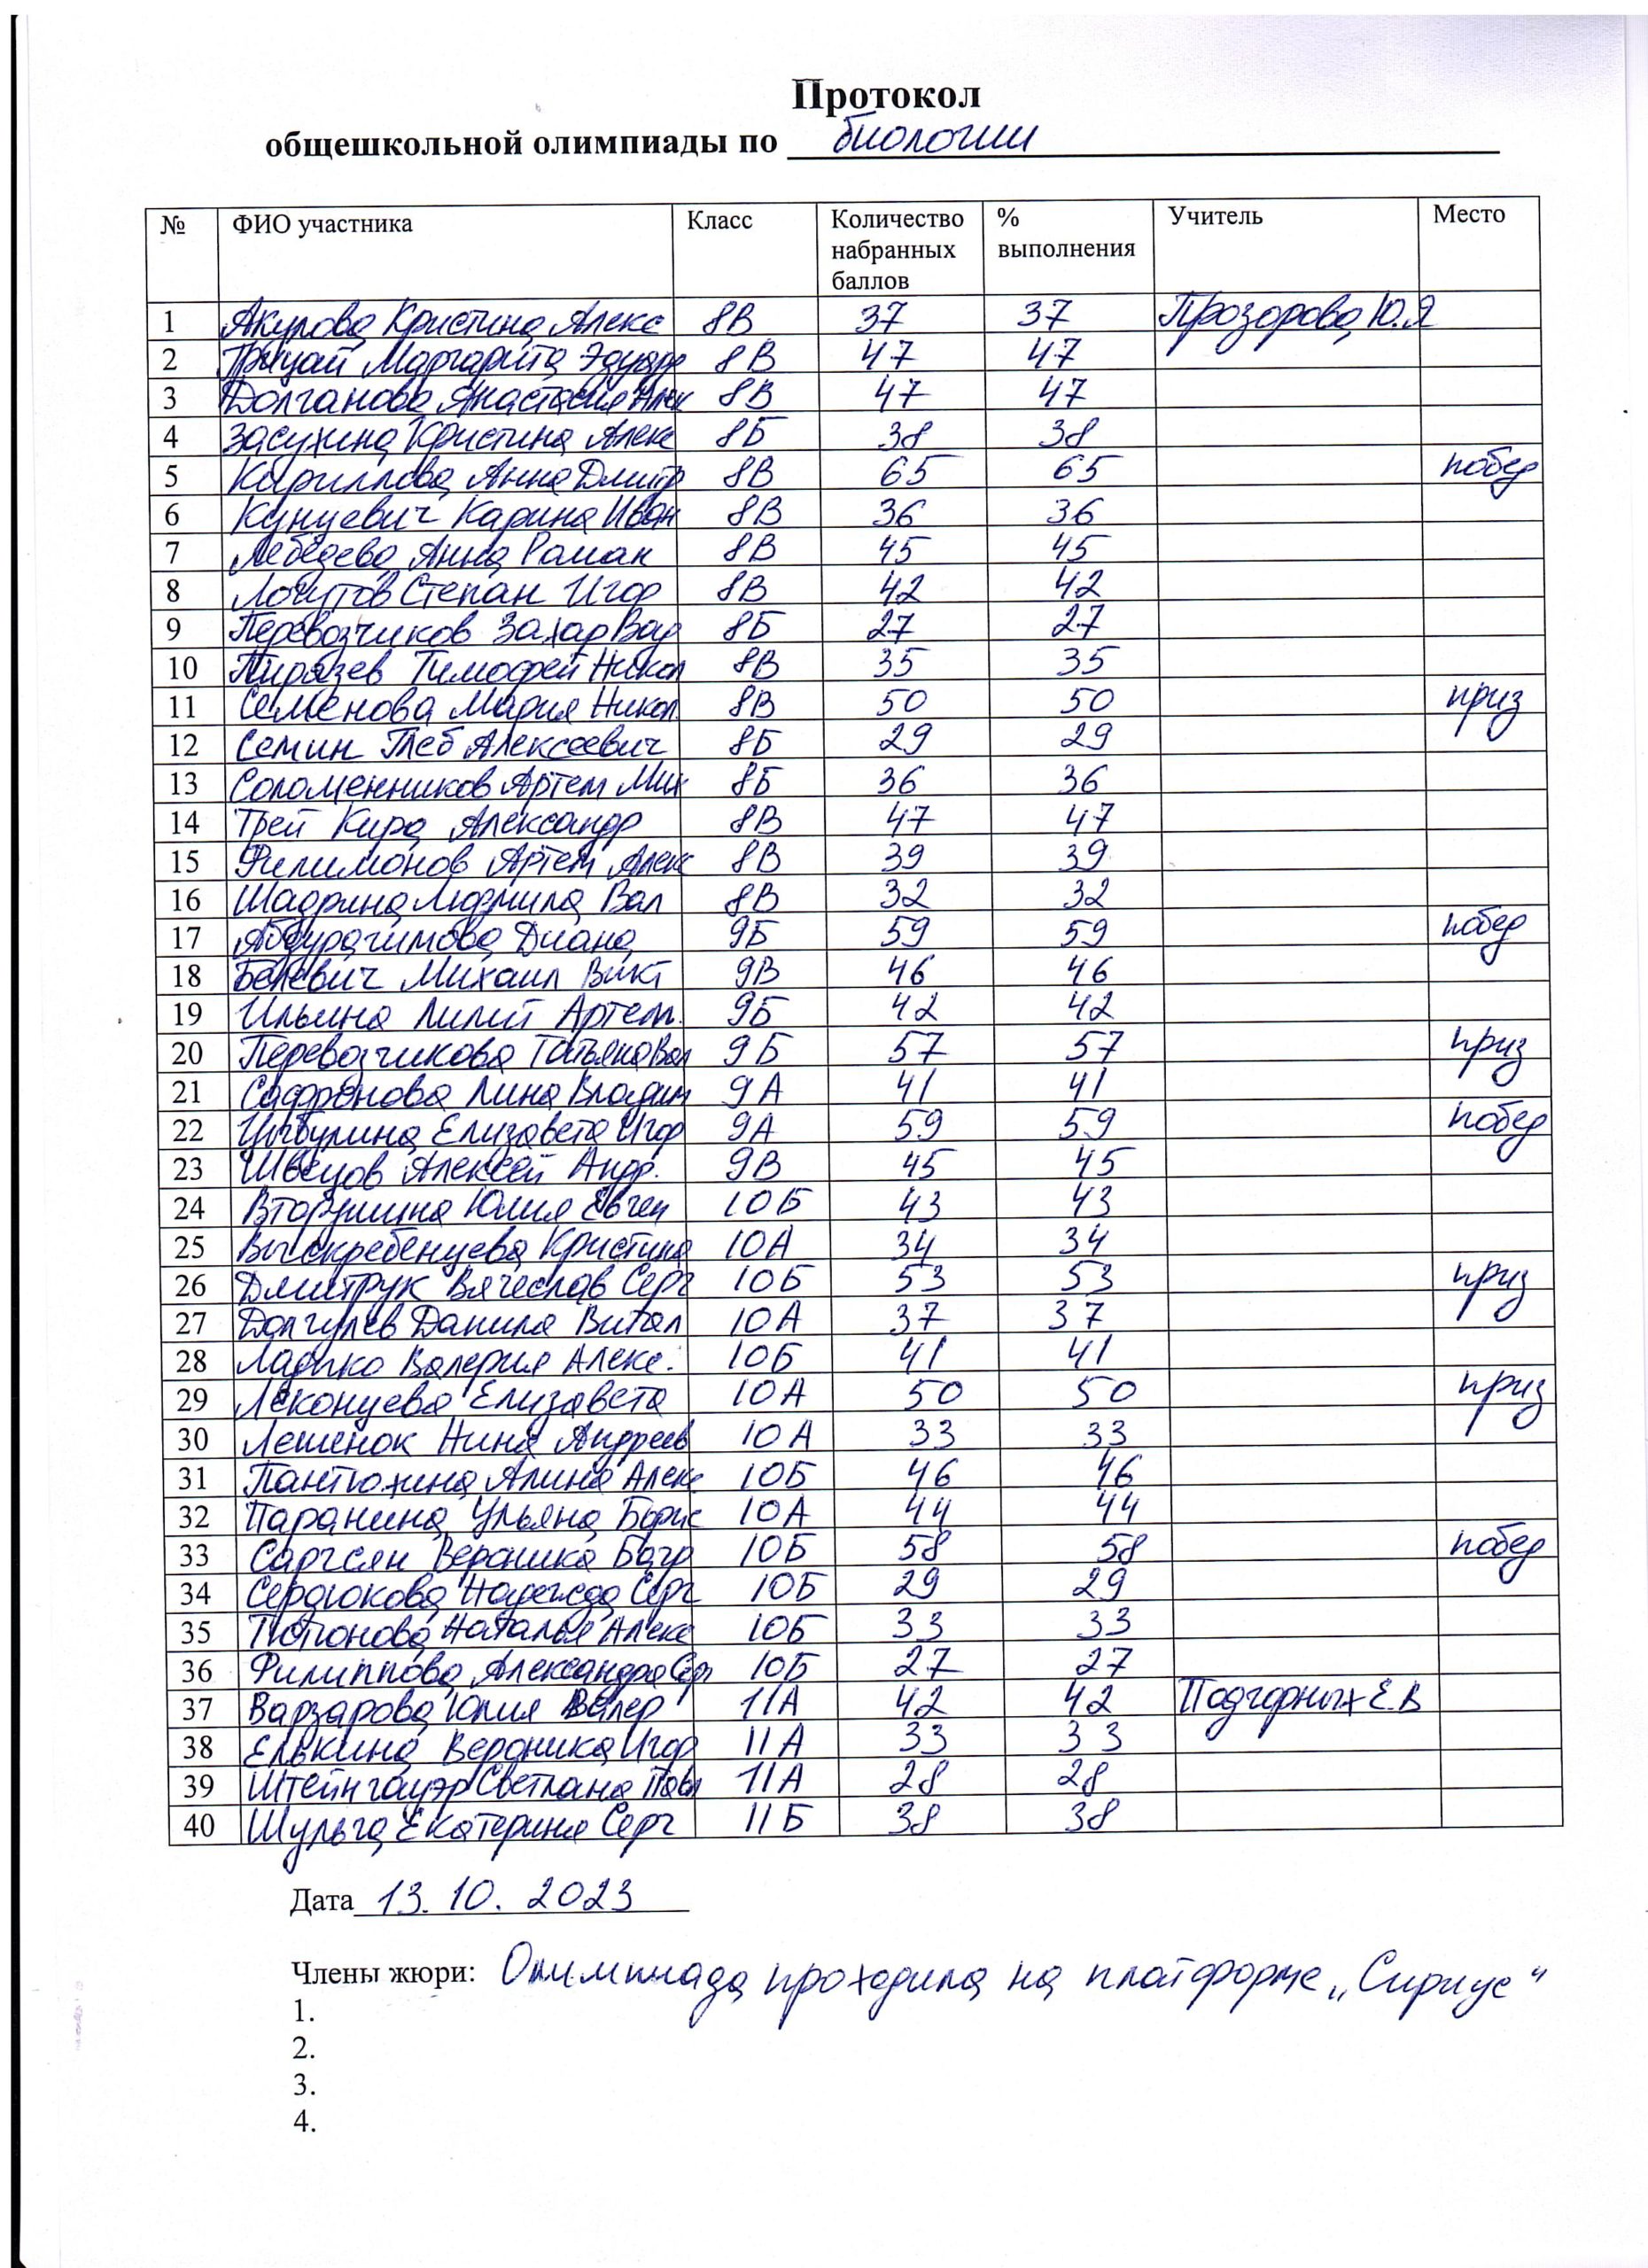 Протокол
общешкольной олимпиады по биологии
№ ФИО участника Класс Количество набранных баллов % выполнения Учитель Место
1 Акулова Кристина Алекс 8В 37 37 Прозорова Ю.Я
2 Грицай Маргарита Эдуард 8В 47 47
3 Долганова Анастасия Алек 8В 47 47
4 Засухина Кристина Алекс 8Б 38 38
5 Кириллова Анна Дмитр 8В 65 65 побед
6 Кунцевич Карина Иван 8В 36 36
7 Лебедева Анна Роман 8В 45 45
8 Степан Игор 8В 42 42
9 Перевозчиков Захар Вад 8Б 27 27
10 Пирязев Тимофей Никол 8В 35 35
11 Семенова Мария Никол. 8В 50 50 приз
12 Семин Глеб Алексеевич 8Б 29 29
13 Соломенников Артем Мих 8Б 36 36
14 Трей Кира Александр 8В 47 47
15 Филимонов Артем Алекс 8В 39 39
16 Шадрина Людмила Вал 8В 32 32
17 Абдурагимова Диана 9Б 59 59 побед
18 Белевич Михаил Викт 9В 46 46
19 Ильина Лилит Артем. 9Б 42 42
20 Перевозчикова Татьяна Вал 9Б 57 57 приз
21 Сафронова Лина Владим 9А 41 41
22 Цыбулина Елизавета Игор 9А 59 59 побед
23 Швецов Алексей Андр. 9В 45 45
24 Вторушина Юлия Евген 10Б 43 43
25 Выскребенцева Кристина 10А 34 34
26 Дмитрук Вячеслав Серг 10Б 53 53 приз
27 Долгулев Данила Витал 10А 37 37
28 Ладыко Валерия Алекс. 10Б 41 41
29 Леконцева Елизавета 10А 50 50 приз
30 Лешенок Нина Андреев 10А 33 33
31 Пантюхина Алина Алекс 10Б 46 46
32 Паранина Ульяна Борис 10А 44 44
33 Саргсян Вероника Багр 10Б 58 58 побед
34 Сердюкова Надежда Серг 10Б 29 29
35 Наталья Алекс 10Б 33 33
36 Филиппова Александра Сер 10Б 27 27
37 Варзарова Юлия Валер 11А 42 42 Подгорных Е.В
38 Елькина Вероника Игор 11А 33 33
39 Штейнгауэр Светлана Павл 11А 28 28
40 Шульга Екатерина Серг 11Б 38 38
Дата 13.10.2023
Члены жюри: Олимпиада проходила на платформе „Сириус“
1.
2.
3.
4.